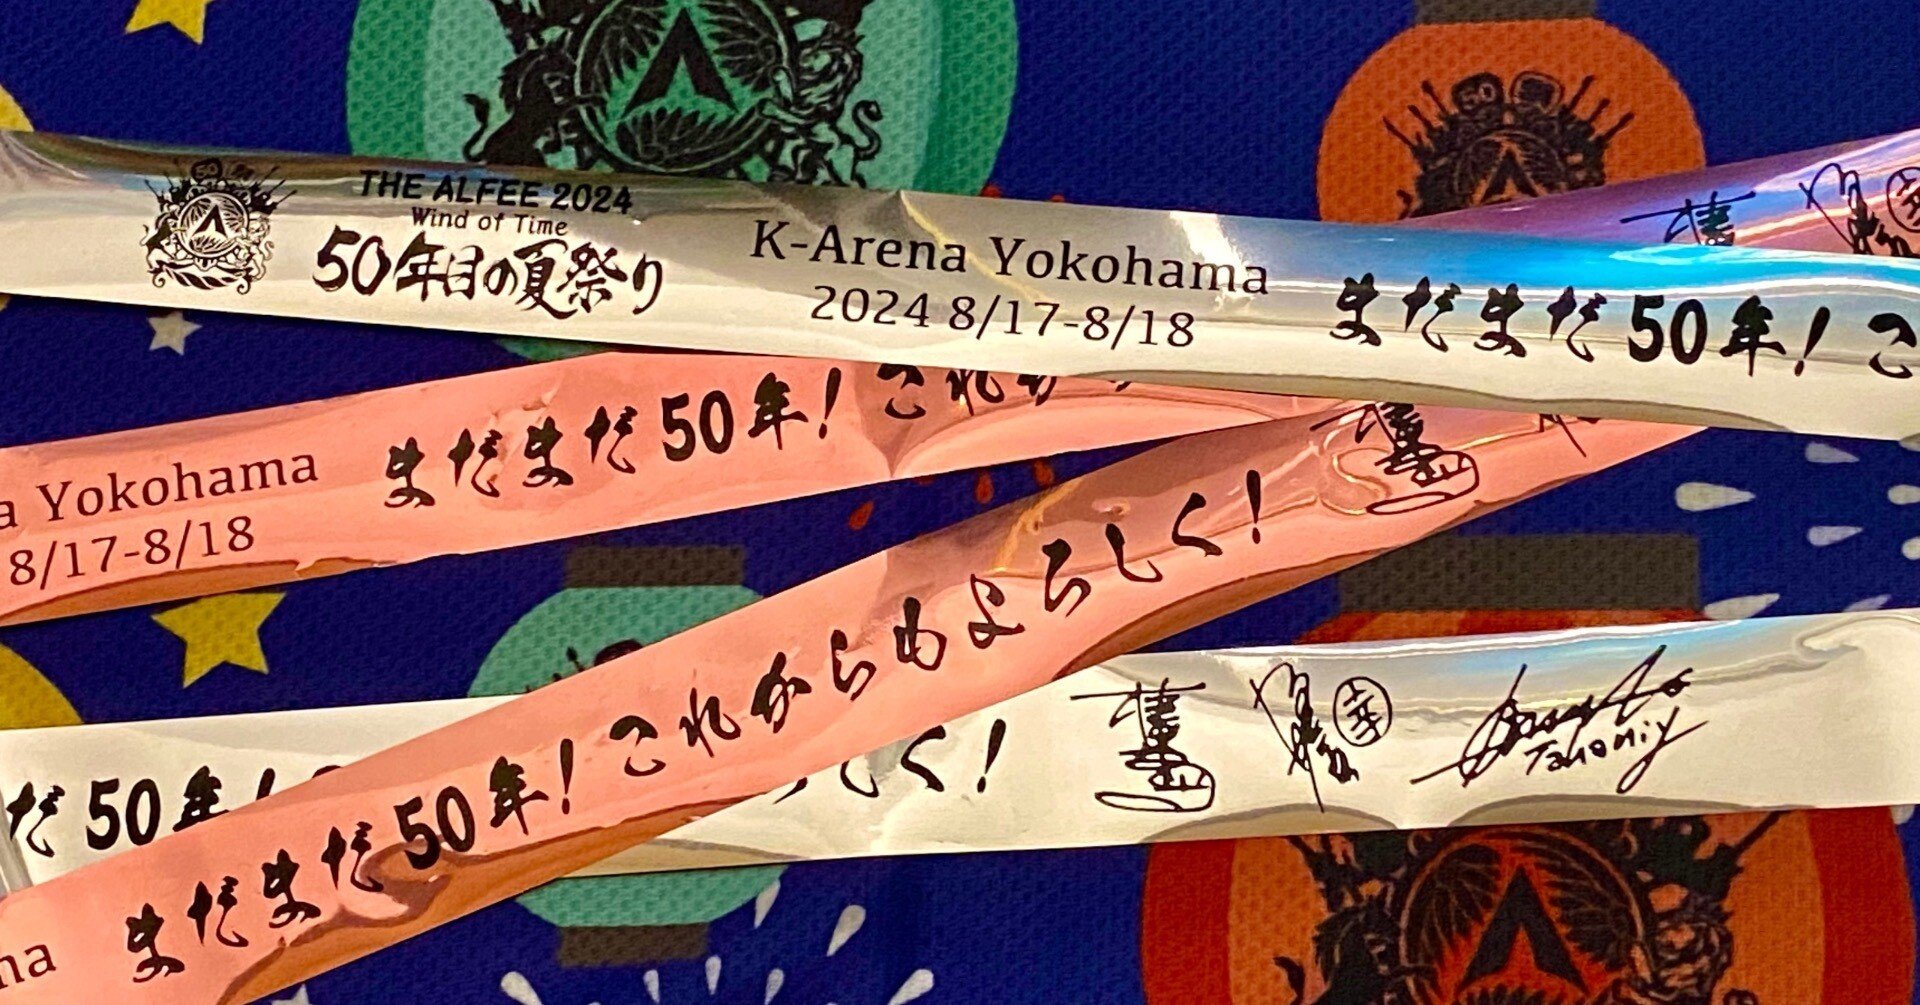 THE ALFEE 2024
Wind of Time
50年目の夏祭り
K-Arena Yokohama
2024 8/17-8/18
まだまだ50年!こ
Yokohama
8/17-8/18
まだまだ50年!これか
だ50年!
しく!
Tanomiy
まだまだ50年!これからもよろしく!